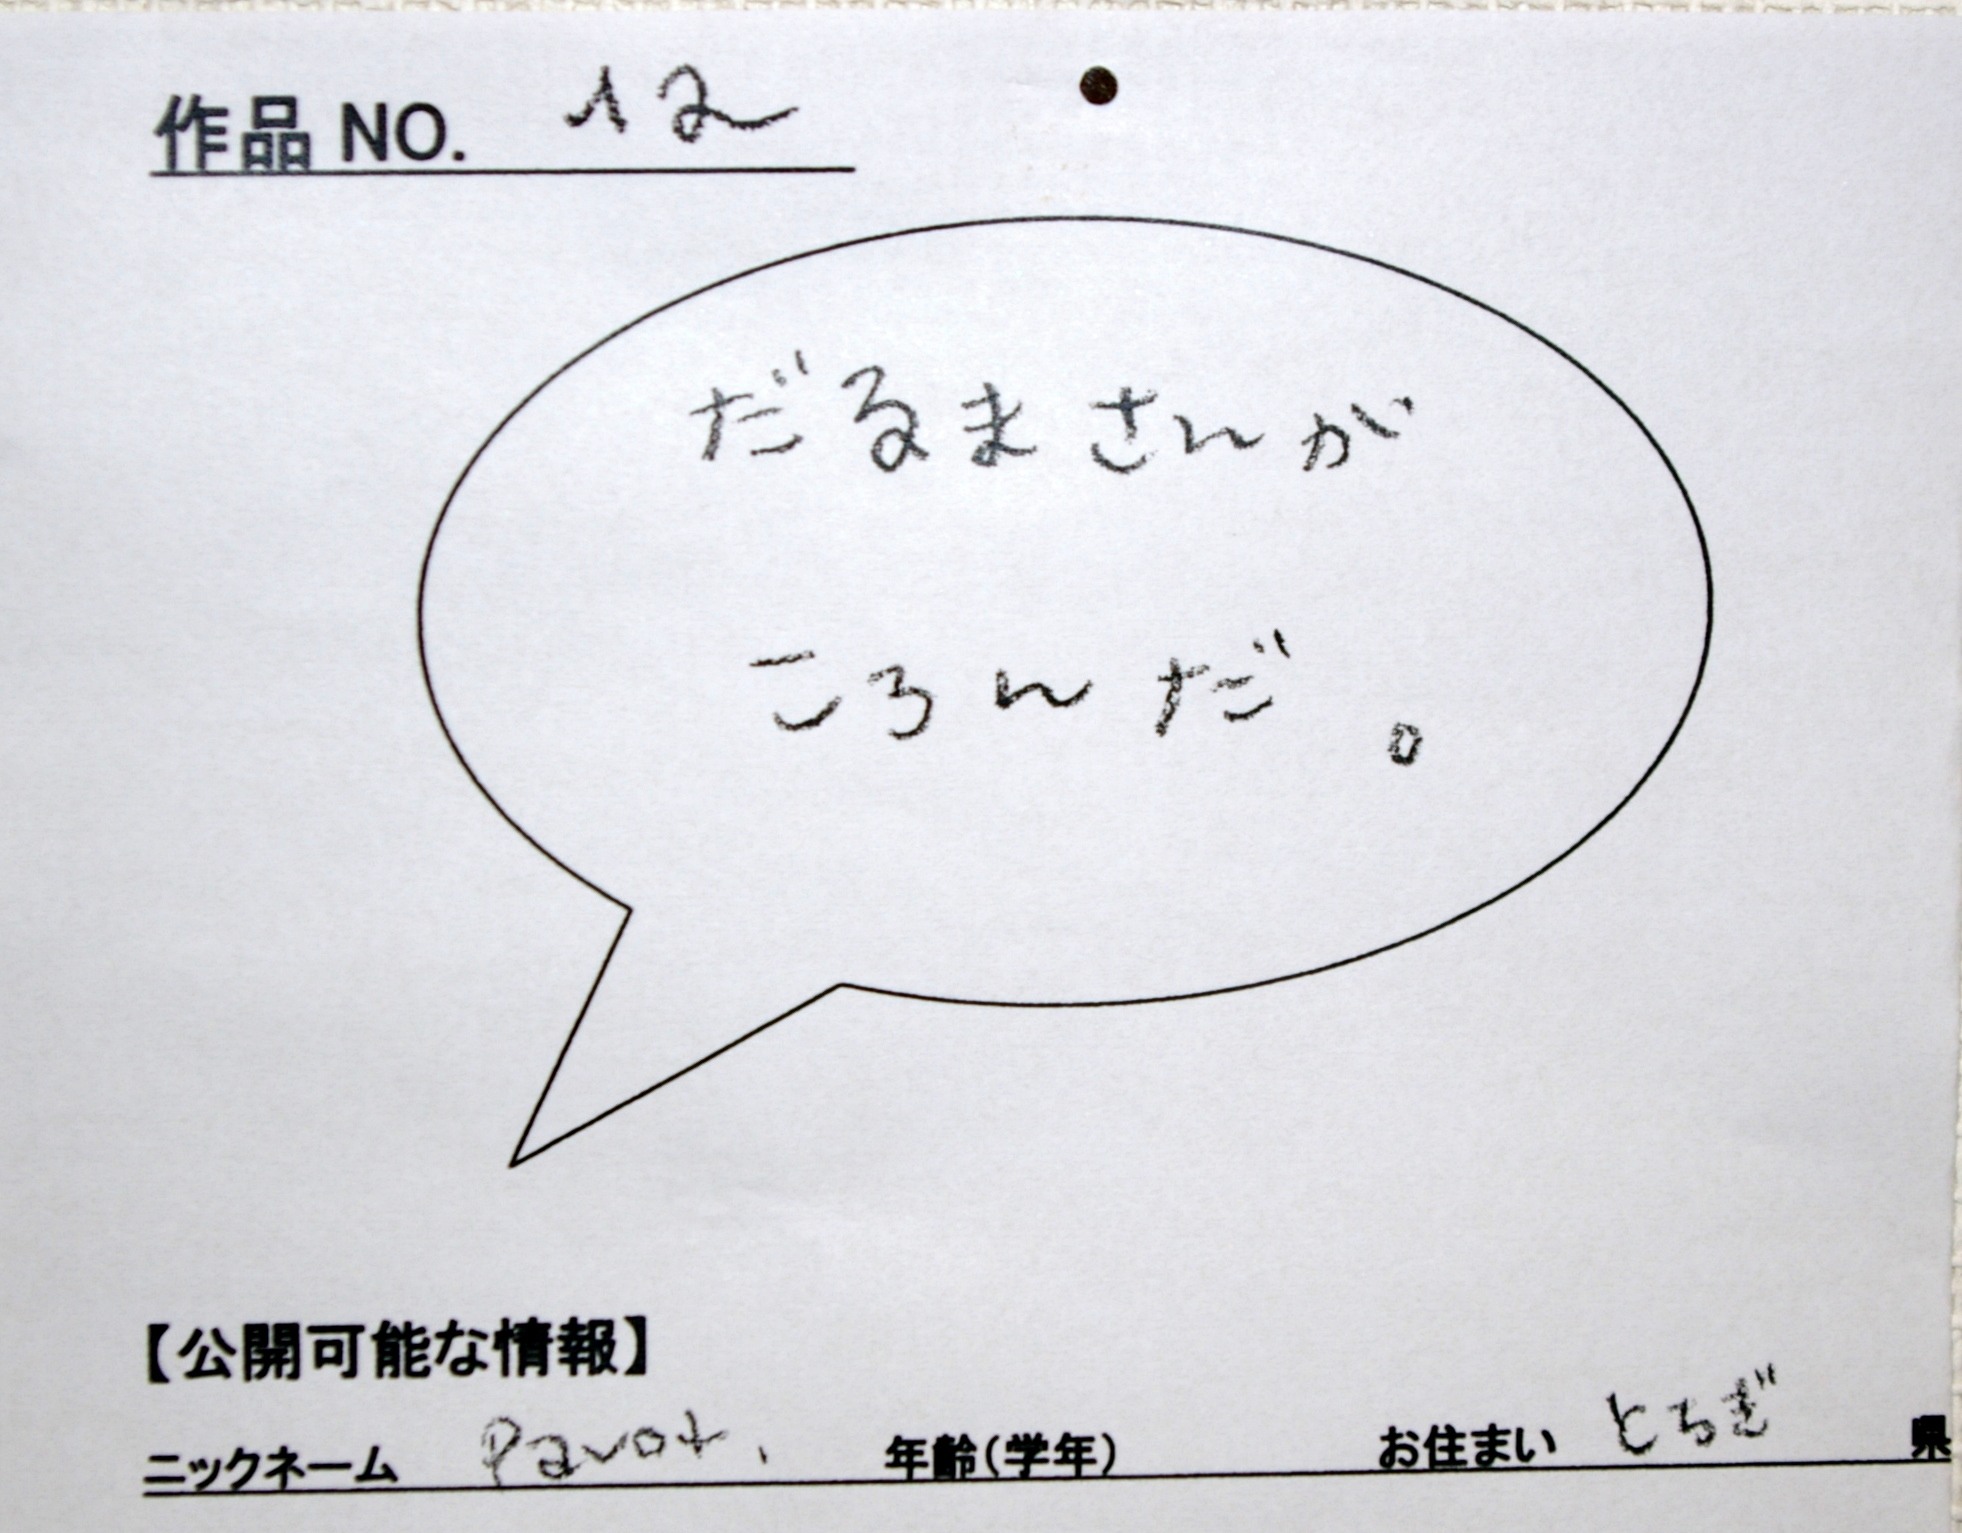 作品 NO. 12
だるまさんが
ころんだ。
【公開可能な情報】
ニックネーム Pavot. 年齢(学年) お住まい とちぎ 県